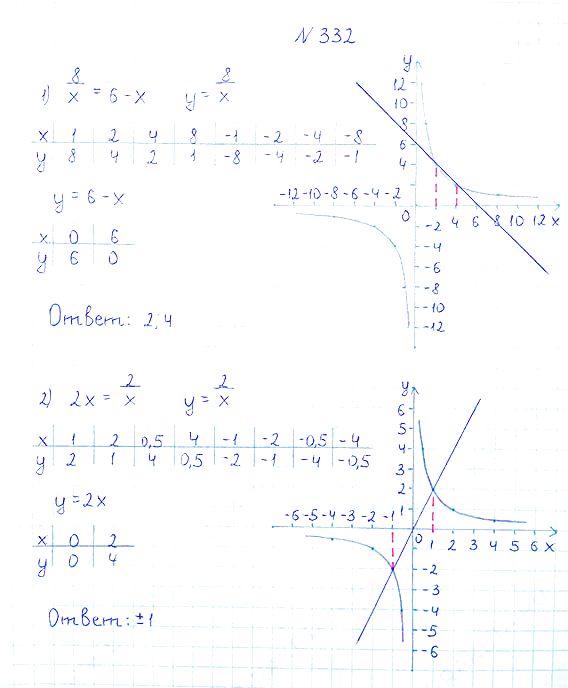 N 332
1) 8/x = 6 - x y = 8/x
x 1 2 4 8 -1 -2 -4 -8
y 8 4 2 1 -8 -4 -2 -1
y = 6 - x
x 0 6
y 6 0
Ответ: 2; 4
y
12
10
8
6
4
-12 -10 -8 -6 -4 -2
0 2 4 6 8 10 12 x
-2
-4
-6
-8
-10
-12
2) 2x = 2/x y = 2/x
x 1 2 0,5 4 -1 -2 -0,5 -4
y 2 1 4 0,5 -2 -1 -4 -0,5
y = 2x
x 0 2
y 0 4
Ответ: ±1
y
6
5
4
3
2
1
-6 -5 -4 -3 -2 -1
0 1 2 3 4 5 6 x
-2
-3
-4
-5
-6